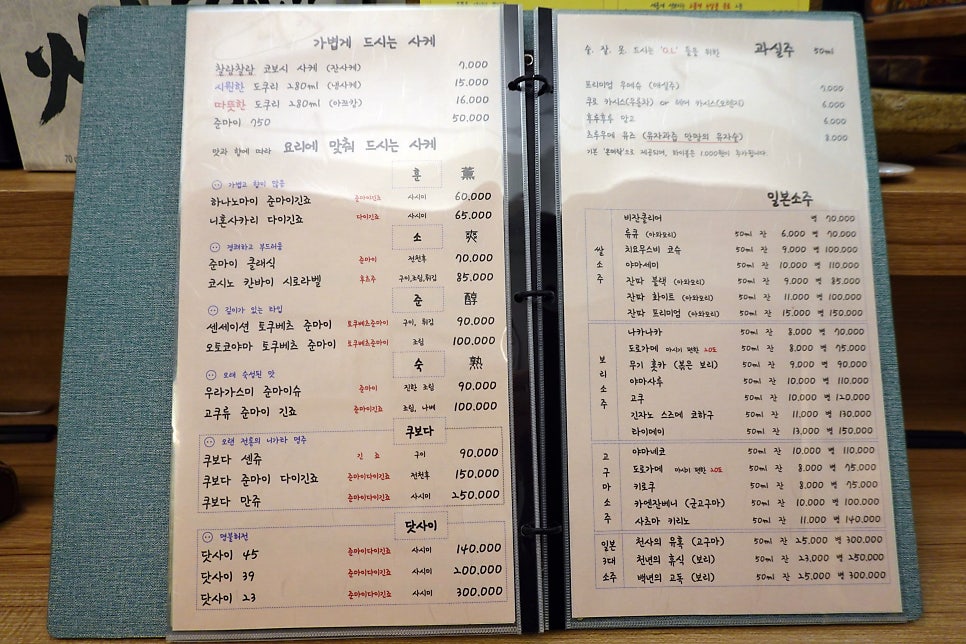 가볍게 드시는 사케
찰랑찰랑 코보시 사케 (잔사케) 7,000
시원한 도쿠리 280ml (냉사케) 15,000
따뜻한 도쿠리 280ml (아쯔캉) 16,000
준마이 750 50,000
맛과 향에 따라 요리에 맞춰 드시는 사케
훈 薰
가볍고 향이 많은
하나노마이 준마이긴죠 준마이긴죠 사시미 60,000
니혼사카리 다이긴죠 다이긴죠 사시미 65,000
소 爽
경쾌하고 부드러움
준마이 클래식 준마이 전천후 70,000
코시노 칸바이 시로라벨 후츠주 구이,조림,튀김 85,000
준 醇
깊이가 있는 타입
센세이션 토쿠베츠 준마이 토쿠베츠준마이 구이, 튀김 90,000
오토코야마 토쿠베츠 준마이 토쿠베츠준마이 조림 100,000
숙 熟
오래 숙성된 맛
우라가스미 준마이슈 준마이 진한 조림 90,000
고쿠류 준마이 긴죠 준마이긴죠 조림, 나베 100,000
쿠보다
오랜 전통의 니가타 명주
쿠보다 센쥬 긴 죠 구이 90,000
쿠보다 준마이 다이긴죠 준마이다이긴죠 전천후 150,000
쿠보다 만쥬 준마이다이긴죠 사시미 250,000
닷사이
명불허전
닷사이 45 준마이다이긴죠 사시미 140,000
닷사이 39 준마이다이긴죠 사시미 200,000
닷사이 23 준마이다이긴죠 사시미 300,000
술. 잘. 못. 드시는 'O.L' 들을 위한 과실주 50ml
프리미엄 우메슈 (매실주) 7,000
쿠로 카시스(우롱차) or 헤머 카시스(오렌지) 6,000
후후후 망고 6,000
츠루우메 유즈 (유자과즙 만땅의 유자술) 8,000
기본 '온더락'으로 제공되며, 하이볼은 1,000원이 추가됩니다.
일본소주
쌀소주
비잔클리어 병 70,000
류큐 (아와모리) 50ml 잔 6,000 병 70,000
치요무스비 코슈 50ml 잔 9,000 병 100,000
야마세미 50ml 잔 10,000 병 110,000
잔파 블랙 (아와모리) 50ml 잔 9,000 병 85,000
잔파 화이트 (아와모리) 50ml 잔 11,000 병 100,000
잔파 프리미엄 (아와모리) 50ml 잔 15,000 병 150,000
보리소주
나카나카 50ml 잔 8,000 병 70,000
도로가메 마시기 편한 20도 50ml 잔 8,000 병 75,000
무기 홋카 (볶은 보리) 50ml 잔 9,000 병 90,000
야마사루 50ml 잔 10,000 병 110,000
고쿠 50ml 잔 10,000 병 120,000
긴자노 스즈메 코하구 50ml 잔 11,000 병 130,000
라이메이 50ml 잔 13,000 병 150,000
고구마소주
야마네코 50ml 잔 10,000 병 110,000
도로가메 마시기 편한 20도 50ml 잔 8,000 병 75,000
키로쿠 50ml 잔 8,000 병 75,000
카엔잔베니 (군고구마) 50ml 잔 10,000 병 100,000
사츠마 키리노 50ml 잔 11,000 병 140,000
일본 3대 소주
천사의 유혹 (고구마) 50ml 잔 25,000 병 300,000
천년의 휴식 (보리) 50ml 잔 23,000 병 250,000
백년의 고독 (보리) 50ml 잔 25,000 병 300,000